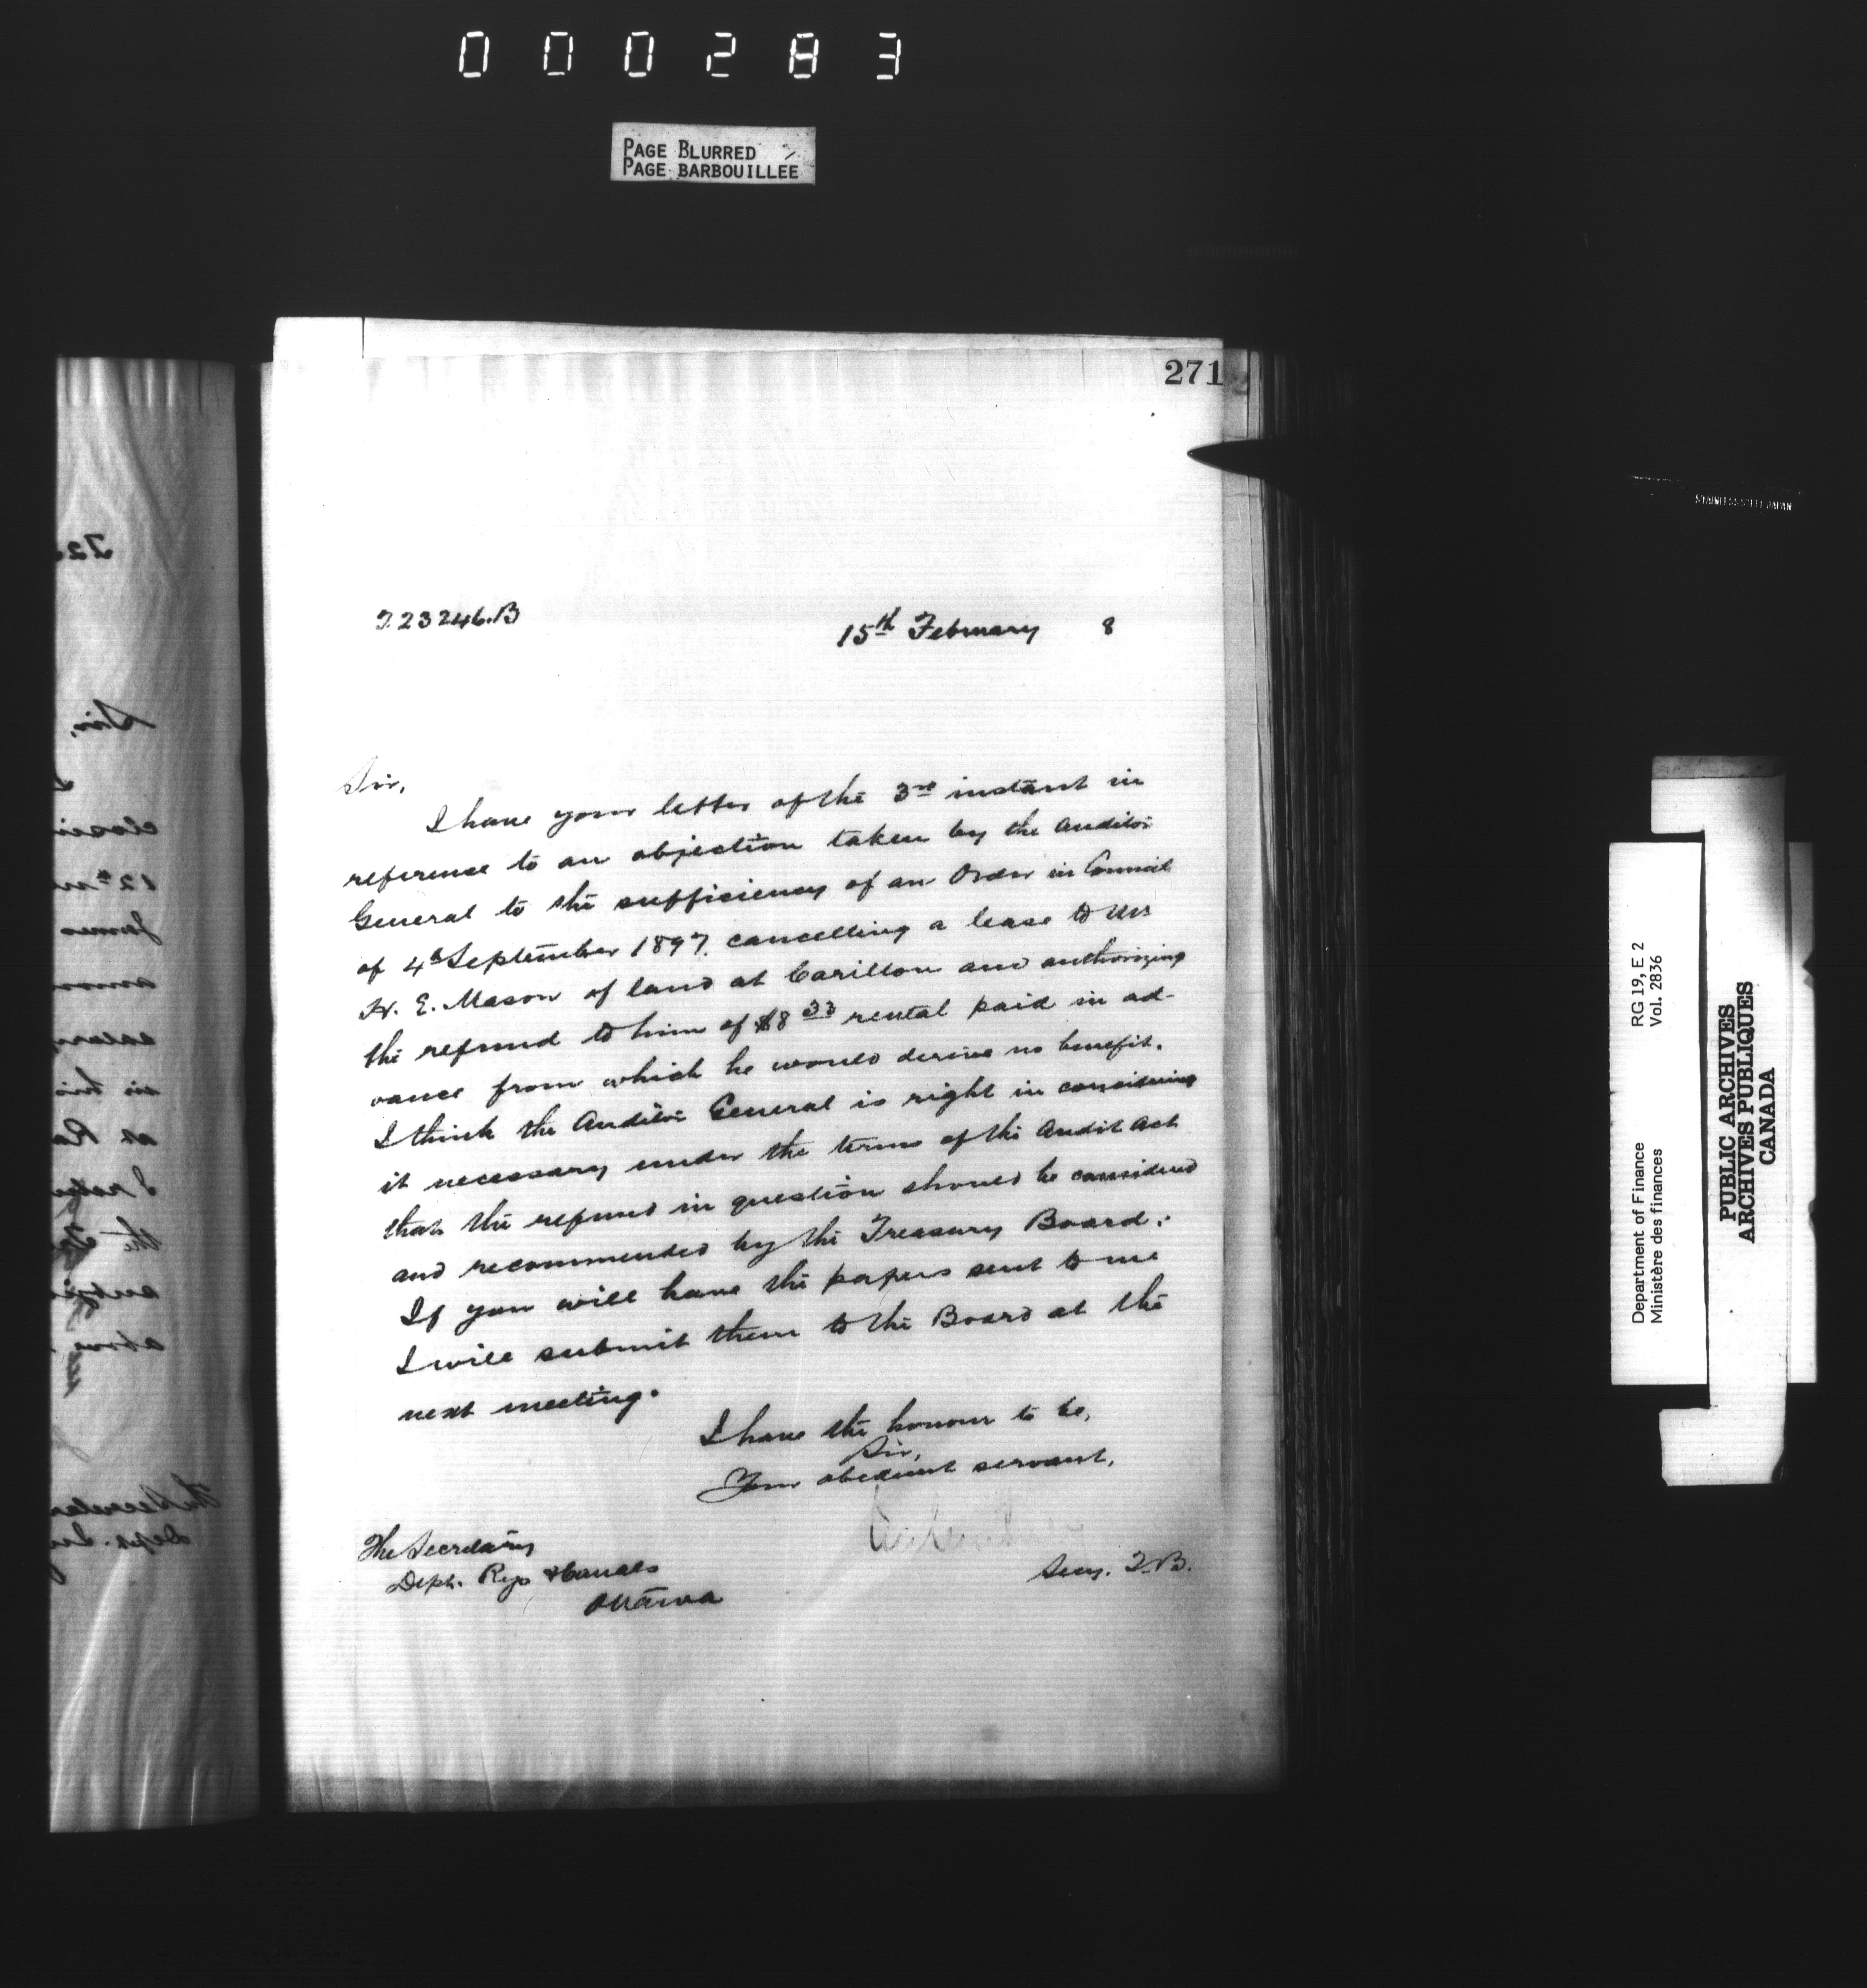 000283
PAGE BLURRED
PAGE BARBOUILLÉE
271
T.23246.B
15th February 8
Sir,
I have your letter of the 3rd instant in
reference to an objection taken by the Auditor
General to the sufficiency of an Order in Council
of 4th September 1897. cancelling a lease to Mr
H. E. Mason of land at Carillon and authorizing
the refund to him of $8 33 rental paid in ad-
vance from which he would derive no benefit.
I think the Auditor General is right in considering
it necessary under the terms of the Audit Act
that the refund in question should be considered
and recommended by the Treasury Board.
If you will have the papers sent to me
I will submit them to the Board at the
next meeting.
I have the honour to be,
Sir,
Your obedient servant,
Secy. T.B.
The Secretary
Dept. Rys & Canals
Ottawa
STAINLESS STEEL JAPAN
Department of Finance RG 19, E 2
Ministère des finances Vol. 2836
PUBLIC ARCHIVES
ARCHIVES PUBLIQUES
CANADA
Sir,
12th
James
in his
the
The Secretary
Dept.